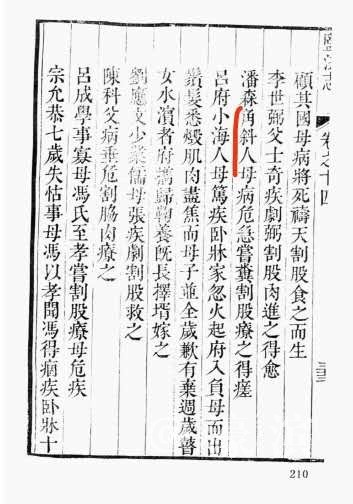 鹽法志
卷之十四
三三
顧其國母病將死禱天割股食之而生
李世弼父士奇疾劇弼割股肉進之得愈
潘森角斜人母病危急嘗糞割股療之得瘥
呂府小海人母篤疾卧牀家忽火起府入負母而出
鬚髮悉燬肌肉盡焦而母子並全歲歉有棄週歲瞽
女水濱者府攜歸鞠養旣長擇壻嫁之
劉應文少業儒母張疾劇割股救之
陳科父病垂危割脇肉療之
呂成學事寡母馮氏至孝嘗割股療母危疾
宗允恭七歲失怙事母馮以孝聞馮得痼疾卧牀十
210